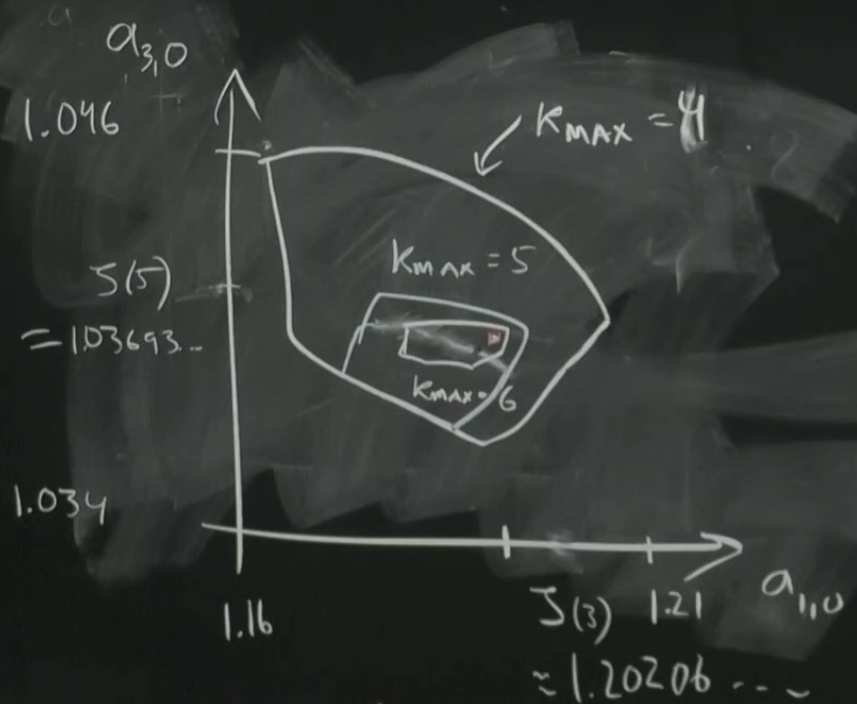 a3,0
1.046
KMAX = 4
ζ(5)
= 1.03693...
KMAX = 5
KMAX = 6
1.034
1.16
ζ(3)
1.21
a1,0
≈ 1.20206....